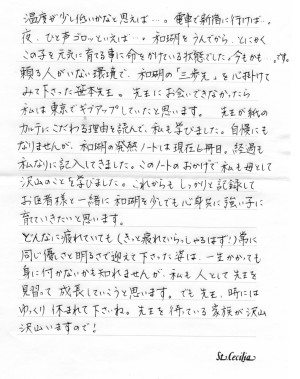 温度が少し低いかなと思えば…。電車で新宿に行けば…。
夜、ひと声ゴロッといえば…。和瑚をうんでから、とにかく
この子を元気に育てる事に命をかけている状態でした。今もかも…です。
頼る人がいない環境で、和瑚の「三歩先」を心掛けて
みて下さった笹本先生。先生にお会いできなかったら
私は東京でギブアップしていたと思います。先生が紙の
カルテにこだわる理由を読んで、私も学びました。自慢にも
なりませんが、和瑚の発熱ノートは現在6冊目。経過も
私なりに記入してきました。このノートのおかげで私も母として
沢山のことを学びました。これからもしっかりと記録して
お医者様と一緒に和瑚を少しでも心身共に強い子に
育てていきたいと思います。
どんなに疲れていても(きっと疲れていらっしゃるはず!)常に
同じ優しさと明るさで迎えて下さった姿は、一生かかっても
身に付かないかも知れませんが、私も人として先生を
見習って成長していこうと思います。でも先生、時には
ゆっくり休まれて下さいね。先生を待っている家族が沢山
沢山いますので!
St. Cecilia